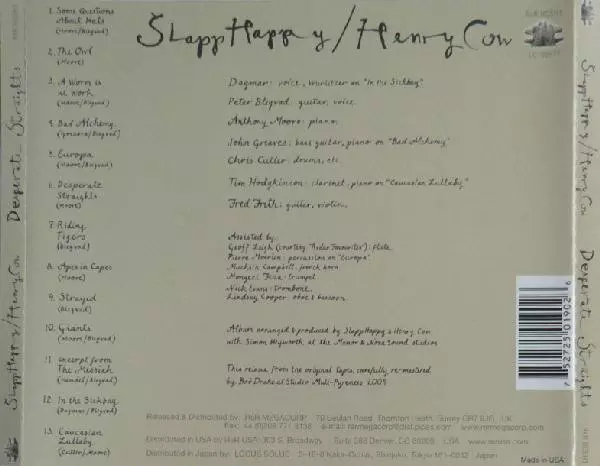 SlappHappy/Henry Cow
1. Some Questions
About Hats
(Moore/Blegvad)
2. The Owl
(Moore)
3. A Worm is
at Work
(Moore/Blegvad)
4. Bad Alchemy
(Greaves/Blegvad)
5. Europa
(Moore/Blegvad)
6. Desperate
Straights
(Moore)
7. Riding
Tigers
(Blegvad)
8. Apes in Capes
(Moore)
9. Strayed
(Blegvad)
10. Giants
(Moore/Blegvad)
11. Excerpt from
The Messiah
(Handel/Blegvad)
12. In the Sickbay
(Dagmar/Blegvad)
13. Caucasian
Lullaby
(Cutler/Moore)
Dagmar: voice, Wurlitzer on "In the Sickbay"
Peter Blegvad: guitar, voice
Anthony Moore: piano
John Greaves: bass guitar, piano on "Bad Alchemy"
Chris Cutler: drums, etc.
Tim Hodgkinson: clarinet, piano on "Caucasian Lullaby"
Fred Frith: guitar, violin.
Assisted by:
Geoff Leigh (courtesy "Radar Favourites"): flute
Pierre Moerlen: percussion on "Europa"
Muchsin Campbell: french horn
Mongezi Feza: trumpet
Nick Evans: trombone
Lindsay Cooper: oboe & bassoon
Album arranged & produced by SlappHappy & Henry Cow
with Simon Heyworth, at the Manor & Nova Sound studios
This reissue from the original tapes, carefully re-mastered
by Bob Drake at Studio Midi-Pyrenees
Released & Distributed by: ReR MEGACORP 79 Beulah Road, Thornton Heath, Surrey CR7 8JG, UK
www.rermegacorp.com
Distributed in USA by ReR USA: 303 S. Broadway, Denver, CO USA
Distributed in Japan by: LOCUS SOLUS Shinjuku, Tokyo Japan
7 52725 01902 6
Made in USA
SlappHappy/Henry Cow Desperate Straights
SlappHappy/Henry Cow Desperate Straights